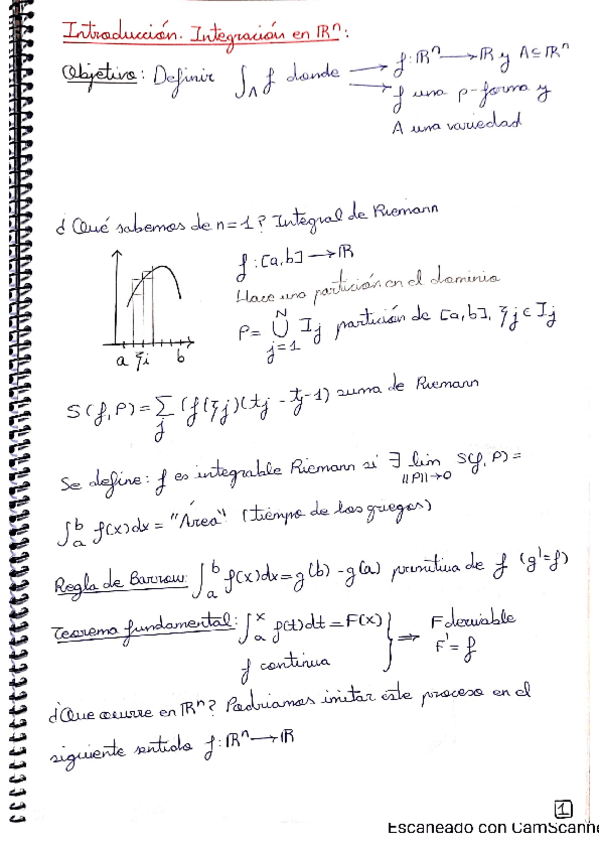 Introducción. Integración en ℝⁿ:
Objetivo: Definir ∫_A f donde → f: ℝⁿ → ℝ y A ⊆ ℝⁿ
→ f una p-forma y
A una variedad
¿Qué sabemos de n=1? Integral de Riemann
f: [a,b] → ℝ
Hace una partición en el dominio
P = ⋃_{j=1}^{N} I_j partición de [a,b], ξ_j ∈ I_j
a ξi b
S(f,P) = ∑_j (f(ξ_j)(t_j - t_j-1) suma de Riemann
Se define: f es integrable Riemann si ∃ lim_{||P||→0} S(f,P) =
∫_a^b f(x)dx = "Área" (tiempo de los griegos)
Regla de Barrow: ∫_a^b f(x)dx = g(b) - g(a) primitiva de f (g'=f)
Teorema fundamental: ∫_a^x f(t)dt = F(x) } ⇒ F derivable
f continua F' = f
¿Que ocurre en ℝⁿ? Podriamos imitar este proceso en el
siguiente sentido f: ℝⁿ → ℝ
1
Escaneado con CamScanne